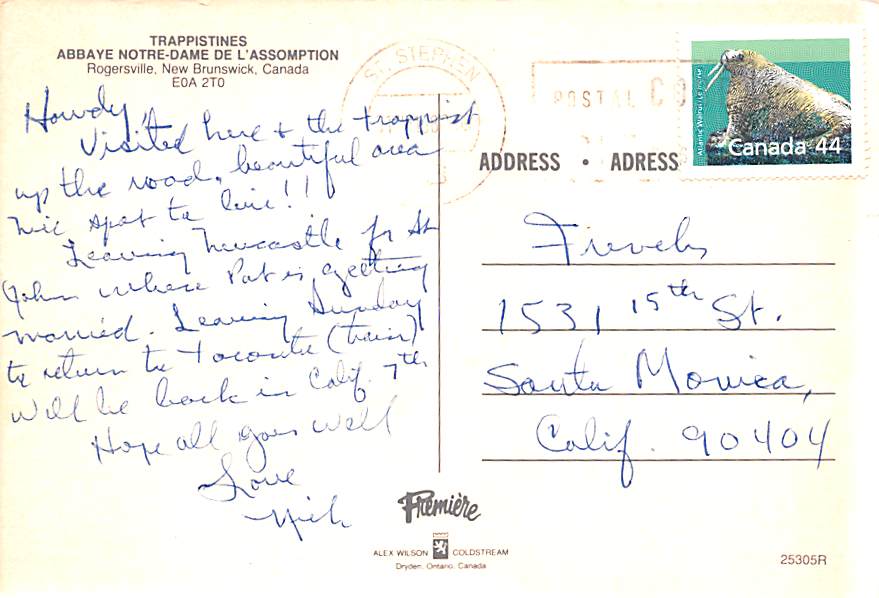 TRAPPISTINES
ABBAYE NOTRE-DAME DE L'ASSOMPTION
Rogersville, New Brunswick, Canada
E0A 2T0
Howdy,
Visited here + the trappist
up the road, beautiful area
nic spot to live!!
Leaving Newcastle for St
John where Pat is getting
married. Leaving Sunday
to return to Toronto (train)
Will be back in Calif. 7th
Hope all goes well
Love
ST. STEPHEN
POSTAL CO
Atlantic Walrus
Canada 44
ADDRESS • ADRESS
1531 15th St.
Santa Monica,
Calif. 90404
Première
ALEX WILSON COLDSTREAM
Dryden, Ontario, Canada
25305R